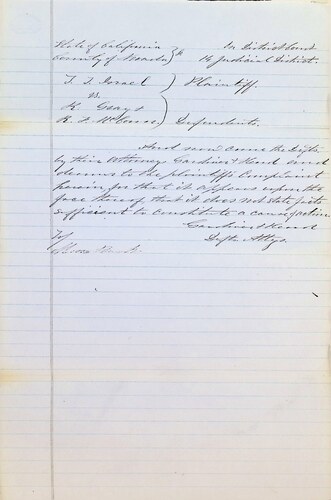 State of California } In District Court
County of Nevada } ss 14 Judicial District.
F. J. Israel ) Plaintiff.
vs
K Grays )
R. J. Defendants.
And now came the Defts
by their Attorneys Gardner & Hund and
demur to the plaintiffs Complaint
herein for that it appears upon the
face thereof that it does not state facts
sufficient to constitute a cause of action
Gardner & Hund
Defts Attys.